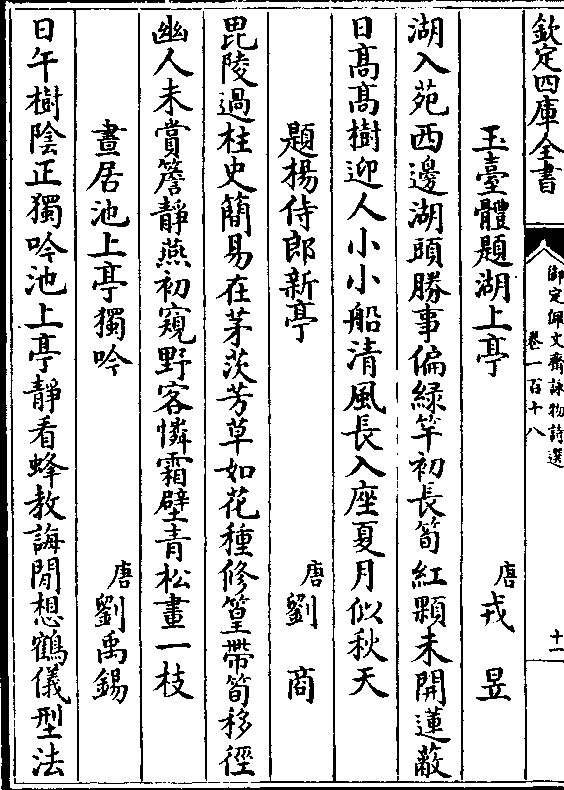 欽定四庫全書
御定佩文齋詠物詩選
卷一百十八
十一
玉臺體題湖上亭
唐戎昱
湖入苑西邊湖頭勝事偏緑竿初長筍紅顆未開蓮蔽
日髙髙樹迎人小小船清風長入座夏月似秋天
題楊侍郎新亭
唐劉商
毘陵過柱史簡易在茅茨芳草如花種修篁帶筍移徑
幽人未賞簷靜燕初窺野客憐霜壁青松畫一枝
晝居池上亭獨吟
唐劉禹錫
日午樹陰正獨吟池上亭靜看蜂教誨閒想鶴儀型法